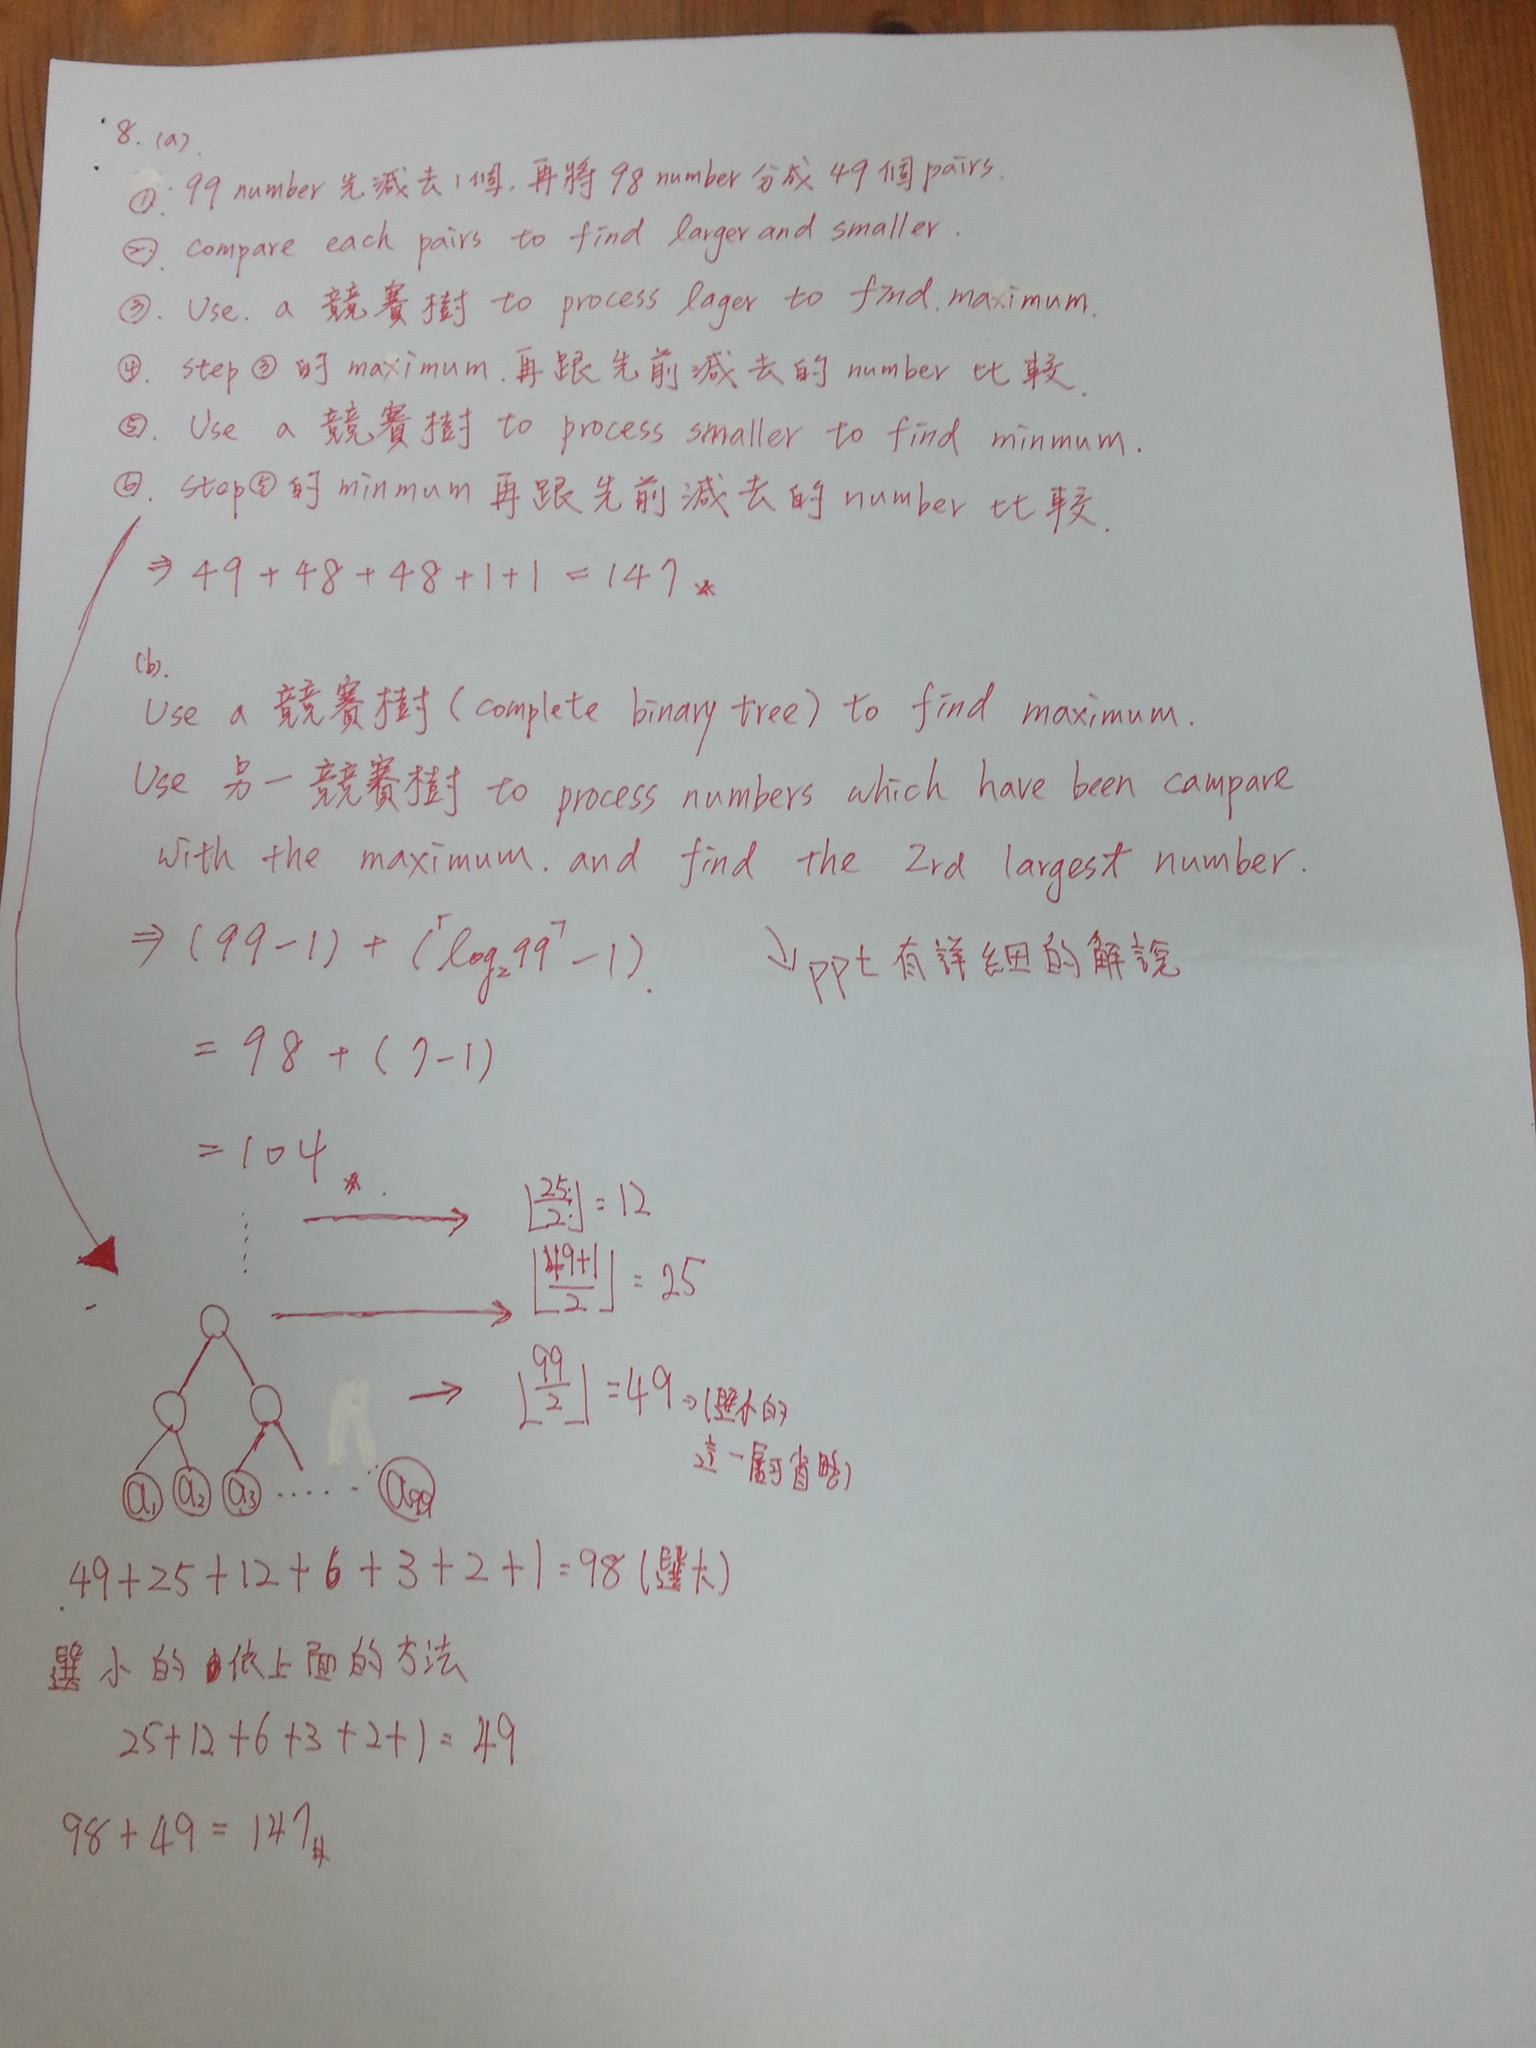 8. (a).
①. 99 number 先減去1個, 再將 98 number 分成 49 個 pairs.
②. compare each pairs to find larger and smaller.
③. Use. a 競賽樹 to process lager to find maximum.
④. step③ 的 maximum 再跟先前減去的 number 比較.
⑤. Use a 競賽樹 to process smaller to find minmum.
⑥. step⑤ 的 minmum 再跟先前減去的 number 比較.
⇒ 49+48+48+1+1 = 147
(b).
Use a 競賽樹 (complete binary tree) to find maximum.
Use 另一競賽樹 to process numbers which have been campare
with the maximum. and find the 2rd largest number.
⇒ (99-1) + (⌈log₂99⌉ -1). ↘ ppt 有詳細的解說
= 98 + (7-1)
= 104
→ ⌊25/2⌋ = 12
→ ⌊49+1/2⌋ = 25
→ ⌊99/2⌋ = 49 → (選小的
這一層可省略)
a₁ a₂ a₃ ...... a₉₉
49+25+12+6+3+2+1 = 98 (選大)
選小的依上面的方法
25+12+6+3+2+1 = 49
98+49 = 147